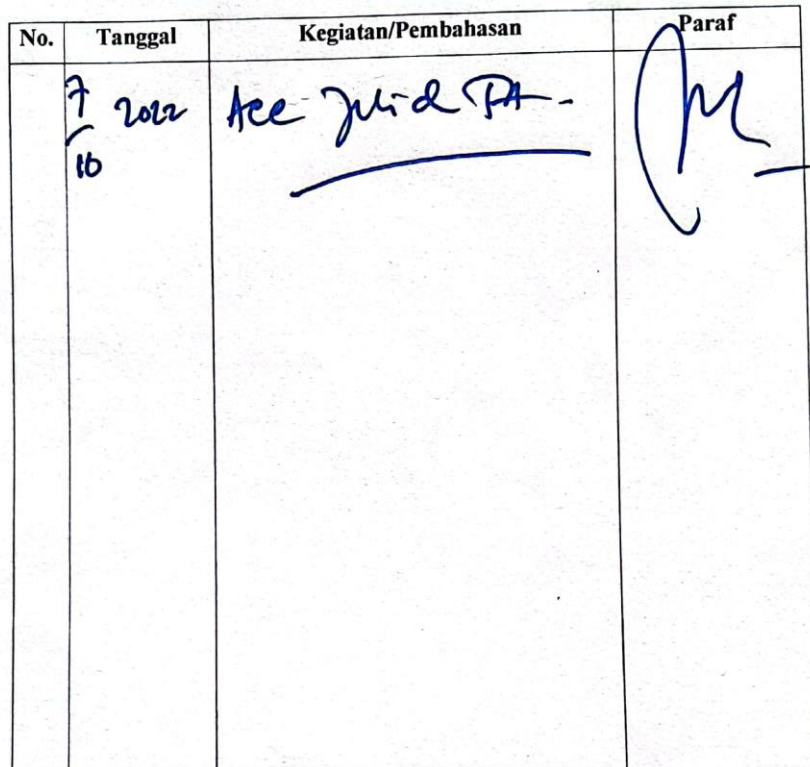 No. Tanggal Kegiatan/Pembahasan Paraf
7/10 2022 Acc Jilid TA-